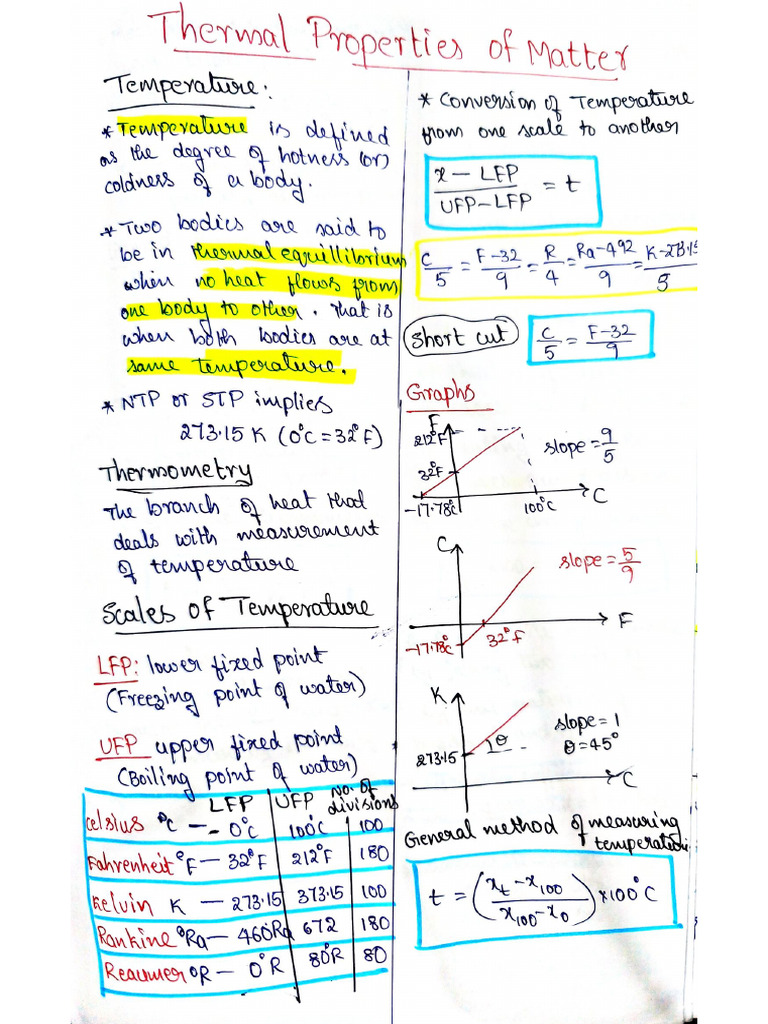 Thermal Properties of Matter
Temperature:
* Temperature is defined
as the degree of hotness (or)
coldness of a body.
* Two bodies are said to
be in thermal equillibrium
when no heat flows from
one body to other. That is
when both bodies are at
same temperature.
* NTP or STP implies
273.15 K (0°C = 32°F)
Thermometry
The branch of heat that
deals with measurement
of temperature
Scales of Temperature
LFP: lower fixed point
(Freezing point of water)
UFP upper fixed point
(Boiling point of water)
LFP UFP No. of divisions
Celsius °C – – 0°C 100°C 100
Fahrenheit °F – 32°F 212°F 180
Kelvin K – 273.15 373.15 100
Rankine °Ra – 460Ra 672 180
Reaumer °R – 0°R 80°R 80
* Conversion of Temperature
from one scale to another
(x – LFP)/(UFP – LFP) = t
C/5 = (F-32)/9 = R/4 = (Ra-492)/9 = (K-273.15)/5
Short cut C/5 = (F-32)/9
Graphs
F
212°F
32°F
-17.78°C 100°C C
slope = 9/5
C
slope = 5/9
-17.78°C 32°F F
K
273.15
θ
slope = 1
θ = 45°
C
General method of measuring
temperature
t = ((x_t - x_100)/(x_100 - x_0)) × 100°C